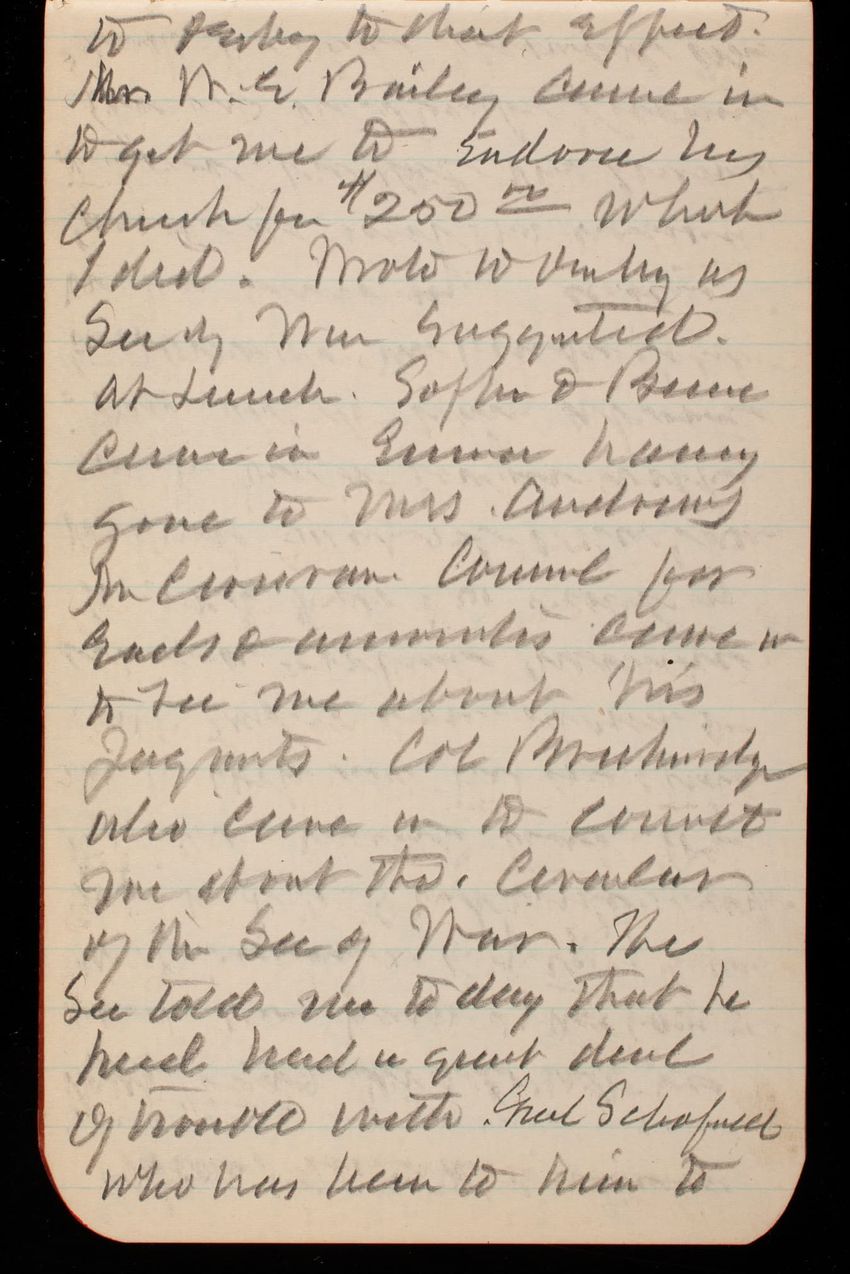 to Parkey to that effect.
Mr W. E. Bailey came in
to get me to endorse his
check for $250 00 which
I did. Wrote to Parkey as
Sec of War suggested.
at Lunch. Sophie & Bessie
came in Emma having
gone to Mrs. Andrews
Mr Corcoran Counsel for
Eads & came in
to see me about his
Col Breckinridge
also came in to consult
me about the. Circular
of the Sec of War. The
Sec told me to day that he
had had a great deal
of trouble with Genl Schofield
who has been to him to